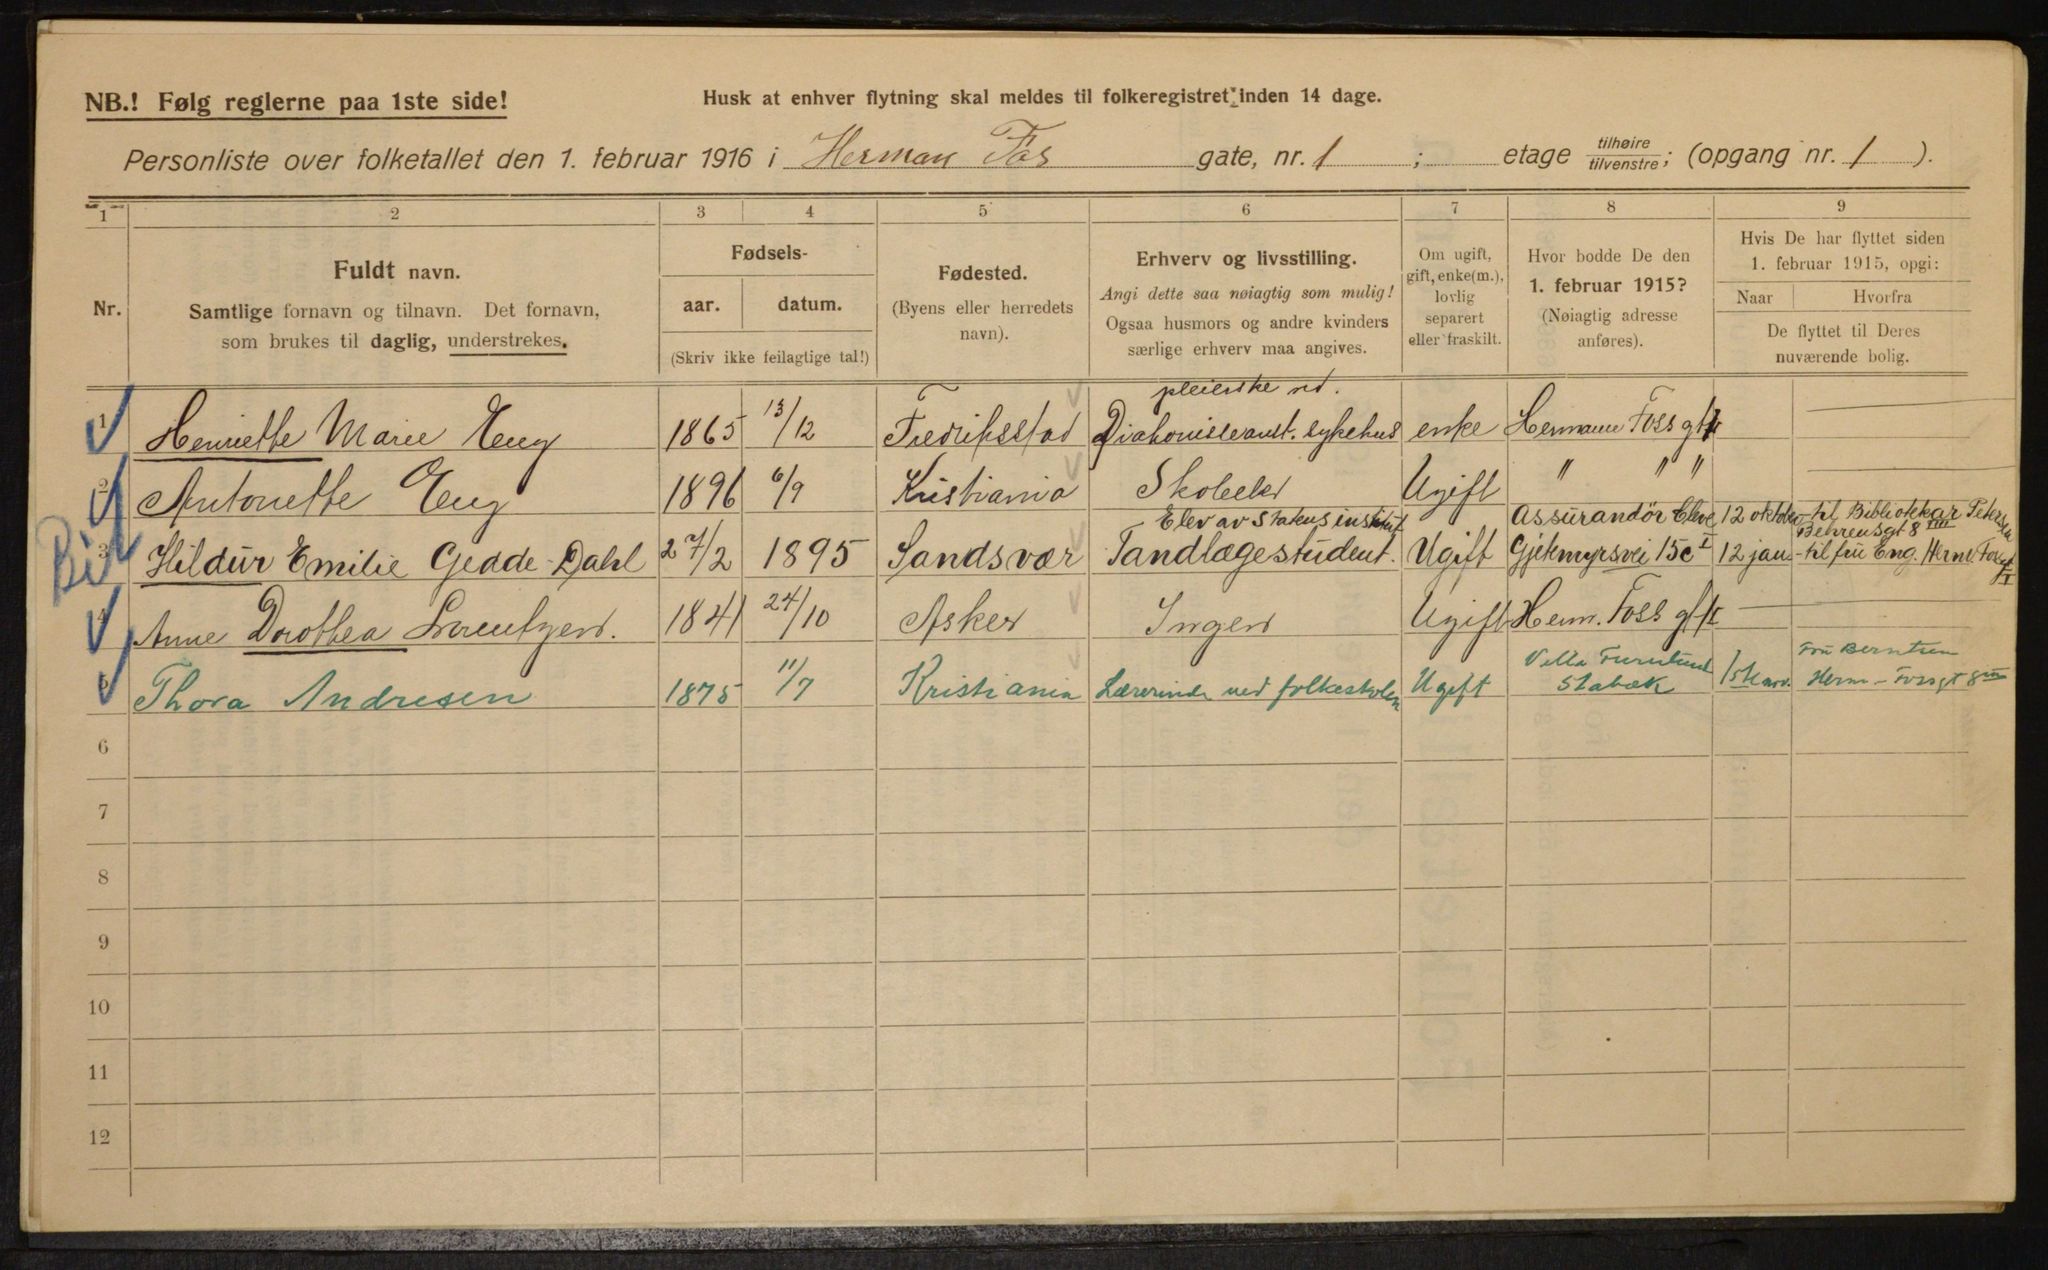 NB.! Følg reglerne paa 1ste side!
Husk at enhver flytning skal meldes til folkeregistret inden 14 dage.
Personliste over folketallet den 1. februar 1916 i Herman Fos gate, nr. 1 ; etage tilhøire/tilvenstre; (opgang nr. 1 ).
1 2 3 4 5 6 7 8 9
Nr.
Fuldt navn.
Samtlige fornavn og tilnavn. Det fornavn,
som brukes til daglig, understrekes.
Fødsels-
aar. datum.
(Skriv ikke feilagtige tal!)
Fødested.
(Byens eller herredets
navn).
Erhverv og livsstilling.
Angi dette saa nøiagtig som mulig!
Ogsaa husmors og andre kvinders
særlige erhverv maa angives.
Om ugift,
gift, enke(m.),
lovlig
separert
eller fraskilt.
Hvor bodde De den
1. februar 1915?
(Nøiagtig adresse
anføres).
Hvis De har flyttet siden
1. februar 1915, opgi:
Naar Hvorfra
De flyttet til Deres
nuværende bolig.
pleierske ved.
1 Henriette Marie Eng 1865 13/12 Fredriksstad Diakonisseanst. sykehus enke Hermann Foss gt 1
2 Antonette Eng 1896 6/9 Kristiania Skoleelev Ugift " " "
Elev av Statens institut Assurandör 12 oktober - til Bibliotekar Petersen
Behrensgt 8 III
3 Hildur Emilie Gedde-Dahl 27/2 1895 Sandsvær Tandlægestudent. Ugift Gjetemyrsvei 15c I 12 jan - til fru Eng. Herm. Fossgt
4 Anne Dorothea Lorentzen. 1841 24/10 Asker Ingen Ugift Herm. Foss gt 1
Villa Furulund Fru Berntsen
5 Thora Andresen 1875 11/7 Kristiania Lærerinde ved folkeskolen Ugift Stabæk 1ste nov. Herm - Fossgt 8 III
6
7
8
9
10
11
12